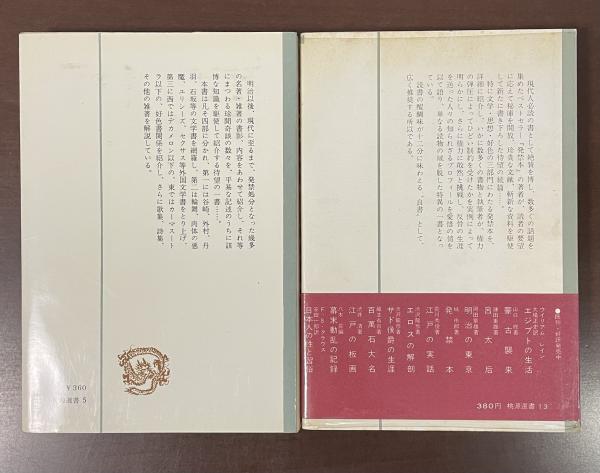 明治以後、現代に至るまで、発禁処分となった幾多
の名著・雑著の書影、内容をあわせて紹介し、それ等
にまつわる珍聞奇談の数々を、平易な記述のうちに該
博な知識を駆使して紹介する待望の一書……。
本書は凡そ四部に分かれ、第一には谷崎、外村、丹
羽、石坂等の文学書を網羅し、第二は輪舞、肉体の悪
魔、ユリシーズ、セクサス等外国文学書をとり上げ
第三に西ではデカメロン以下の、東ではカーマスート
ラ以下の、好色書関係を紹介し、さらに歌集、詩集、
その他の雑著を解説している。
￥360
選書 5
現代人必読の書として絶賛を博し、数多くの話題を
集めたベストセラー「発禁本」の著者が、読者の要望
に応えて秘庫を開放、珍貴な文献、斬新な資料を駆使
して新たに書き下ろした待望の続篇……。
特に文学・思想・好色の三部門にわたる発禁本を、
詳細に紹介し、いかに数多くの書物と執筆者が、権力
の弾圧によってひどい制約を受けたかを実例によって
明らかにし、さらに権力に敢然と挑戦し、反骨の生涯
を送った人々の知られざるプロフィールを愛惜の筆を
以て語り、単なる読物の域を脱した特異の一書となっ
ている。
読書の醍醐味が十二分に味わえる〝良書〟として、
広く推奨する所以である。
ウイリアム・レイン
エジプトの生活
蒙古襲来
呂太后
明治の東京
発禁本
江戸の実話
エロスの解剖
サド侯爵の生涯
百萬石大名
江戸の板画
幕末動乱の記録
F・S・クラウス
日本人の性と習俗
380円 桃源選書 13